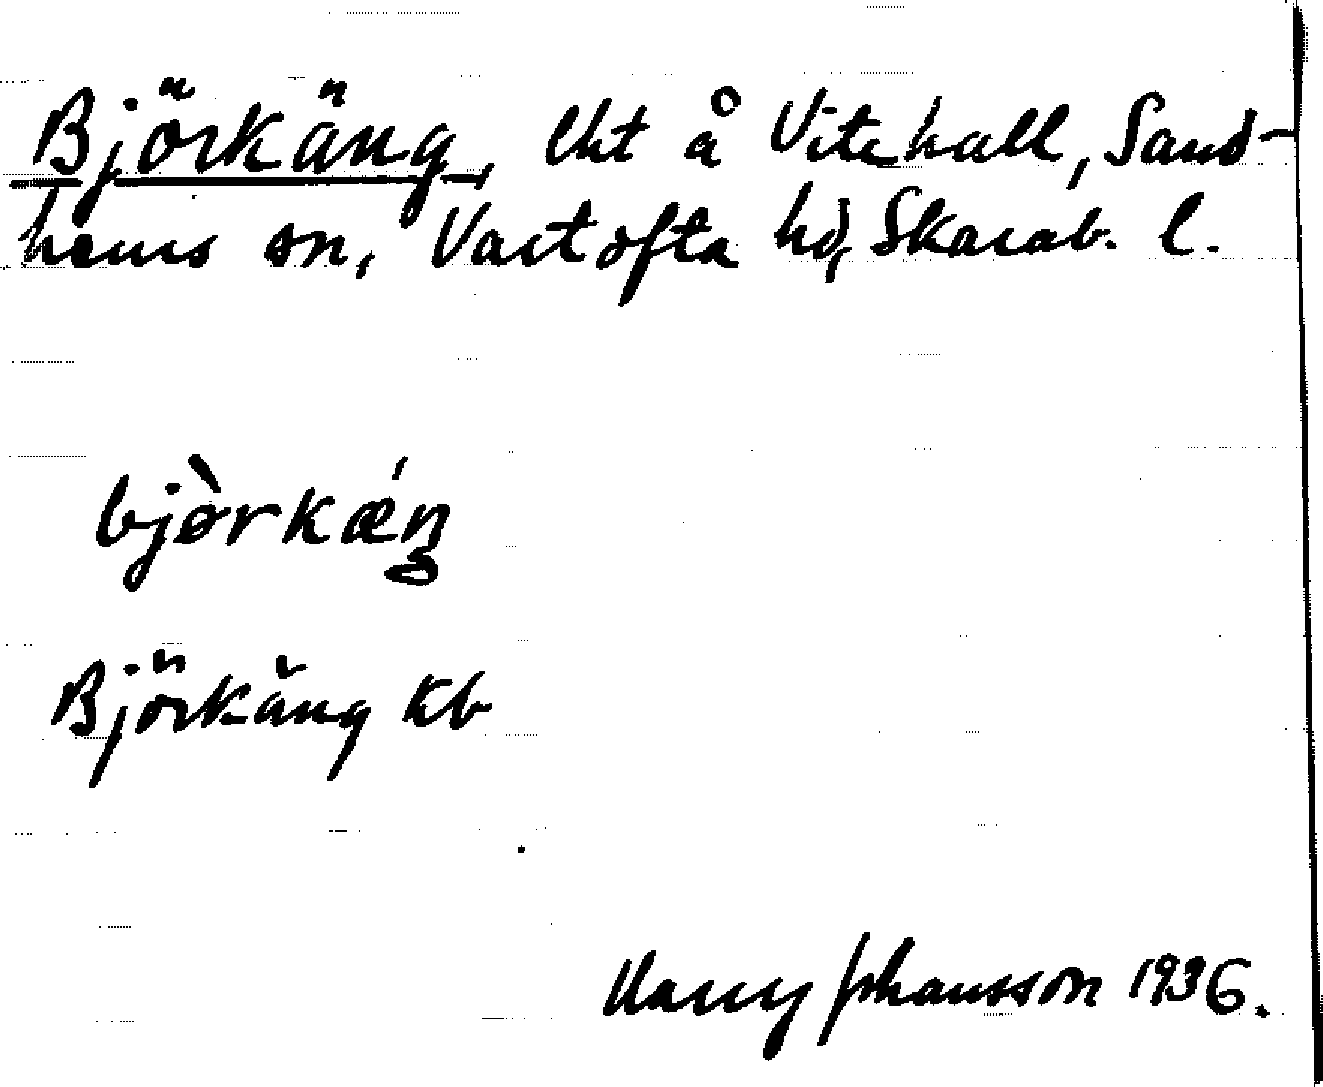 Björkäng, lht å Vitehall, Sand-
hems sn, Vartofta hd, Skarab. l.
bjòrkǽŋ
Björkäng Kb
Harry Johansson 1936.